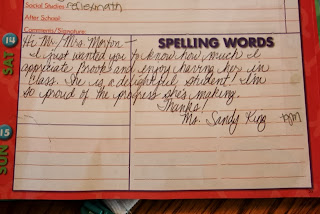 Social Studies:
After School:
Comments/Signature
SAT 14
SPELLING WORDS
Hi Mr./Mrs. Morton -
I just wanted you to know how much I
appreciate Brook and enjoy having her in
class. She is a delightful student! I'm
so proud of the progress she's making.
Thanks!
Ms. Sandy King
SUN 15